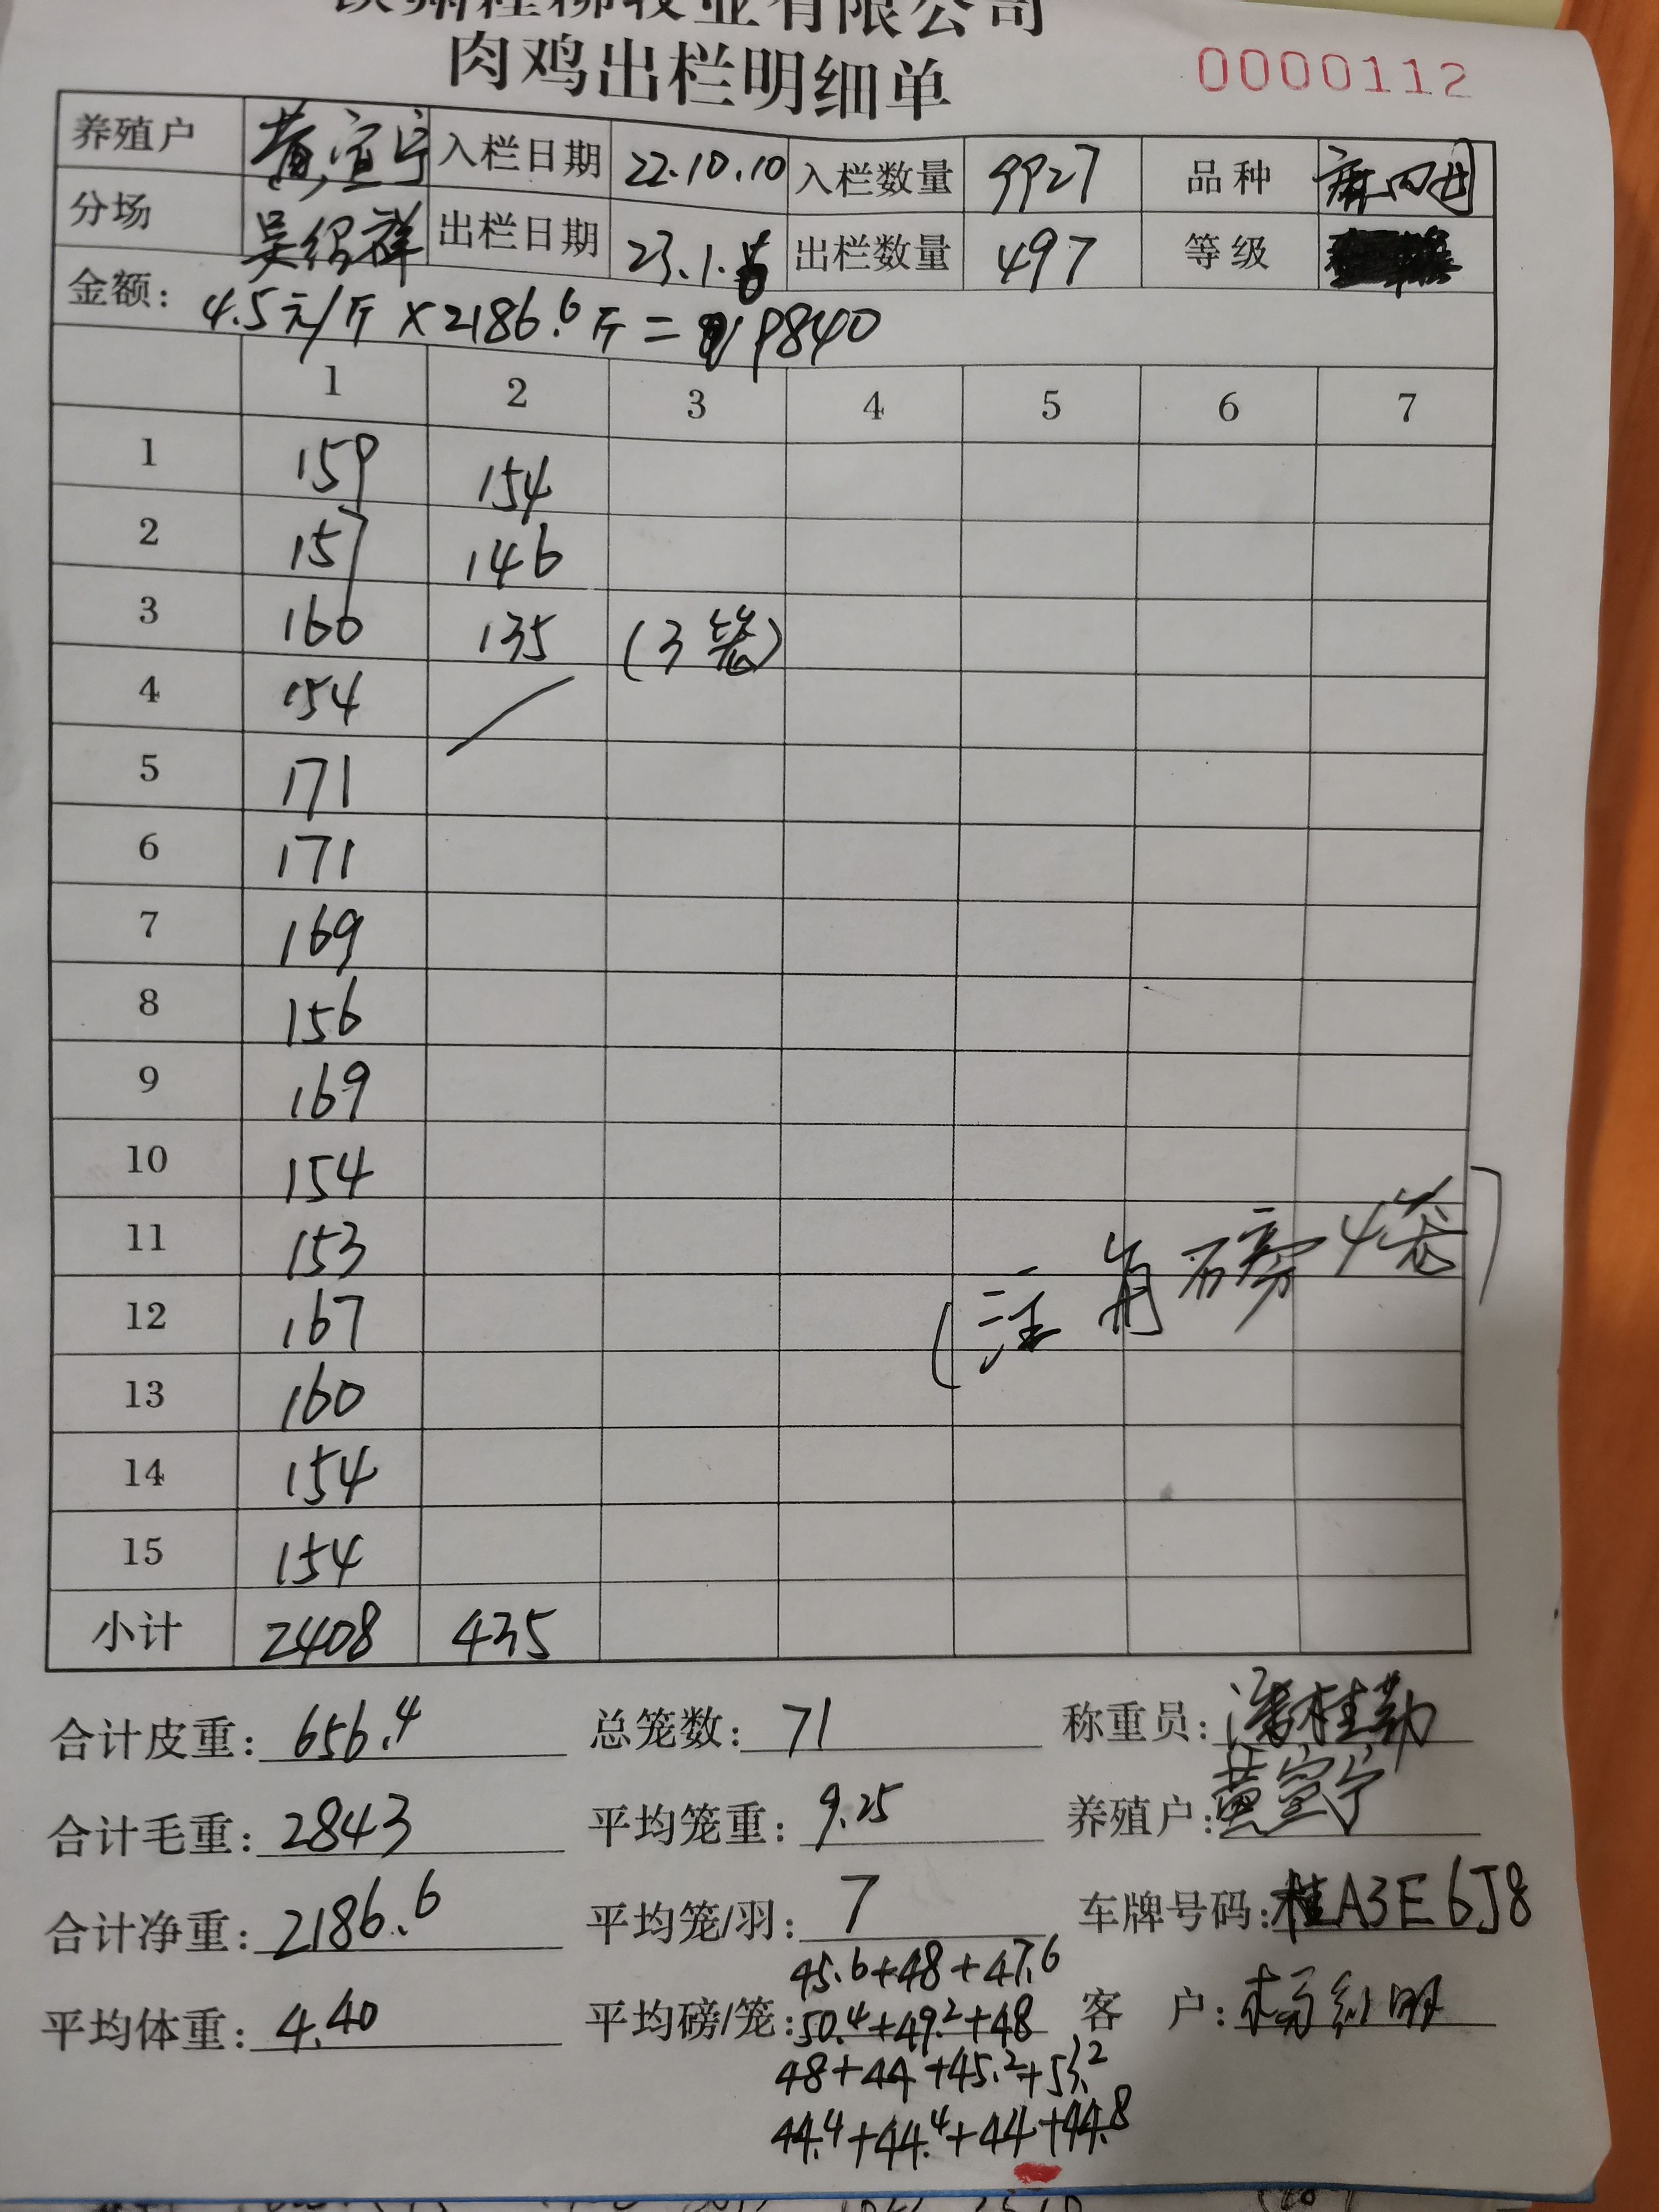 牧业有限公司
肉鸡出栏明细单
0000112
养殖户 黄宣宁 入栏日期 22.10.10 入栏数量 9927 品种
分场 吴绍祥 出栏日期 23.1. 出栏数量 497 等级
金额: 4.5元/斤 ×2186.6斤 = 9840
1 2 3 4 5 6 7
1 159 154
2 157 146
3 160 135 (3笼)
4 154
5 171
6 171
7 169
8 156
9 169
10 154
11 153
12 167
13 160
14 154
15 154
(注 每磅4笼)
小计 2408 435
合计皮重: 656.4 总笼数: 71 称重员: 潘桂勤
合计毛重: 2843 平均笼重: 9.25 养殖户: 黄宣宁
合计净重: 2186.6 平均笼/羽: 7 车牌号码: 桂A3E6J8
45.6+48+47.6
平均体重: 4.40 平均磅/笼: 50.4+49.2+48 客 户:
48+44+45.2+51.2
44.4+44.4+44+44.8